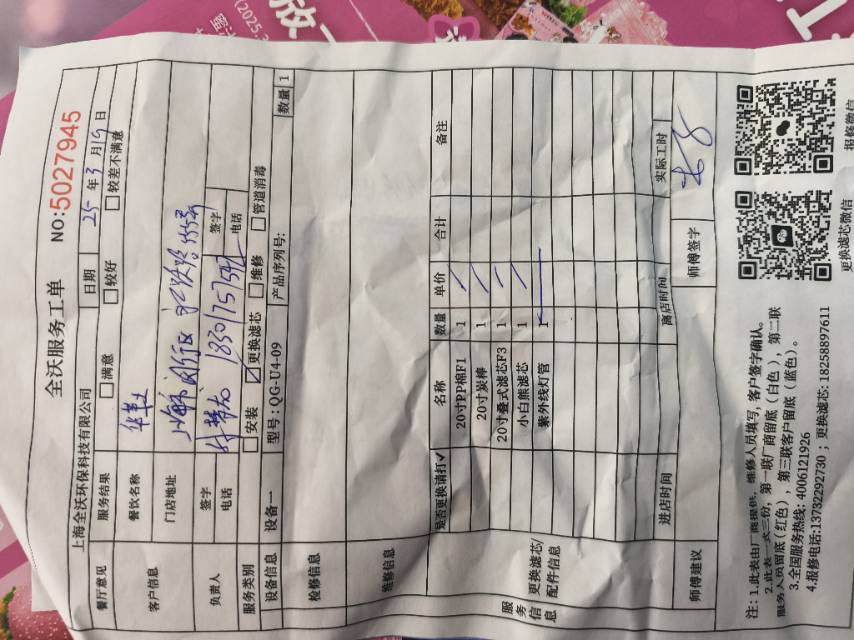 全沃服务工单 NO:5027945
上海全沃环保科技有限公司 日期 25年3月19日
餐厅意见 服务结果 □满意 □较好 □较差不满意
客户信息 餐饮名称 华莱士
门店地址 上海市闵行区
负责人 签字 签字
电话 电话
服务类别 □安装 ☑更换滤芯 □维修 □管道消毒
设备信息 设备一 型号:QG-U4-09 产品序列号: 数量 1
检修信息
维修信息
服务信息 更换滤芯/配件信息 是否更换请打✓ 名称 数量 单价 合计 备注
20寸PP棉F1 1
20寸炭棒 1
20寸叠式滤芯F3 1
小白熊滤芯 1
紫外线灯管 1
进店时间 离店时间 实际工时
师傅建议 师傅签字
注:1.此表由厂商提供,维修人员填写,客户签字确认。
2.此表一式三份,第一联厂商留底(白色),第二联
服务人员留底(红色),第三联客户留底(蓝色)。
3.全国服务热线:4006121926
4.报修电话:13732292730;更换滤芯:18258897611
更换滤芯微信 报修微信